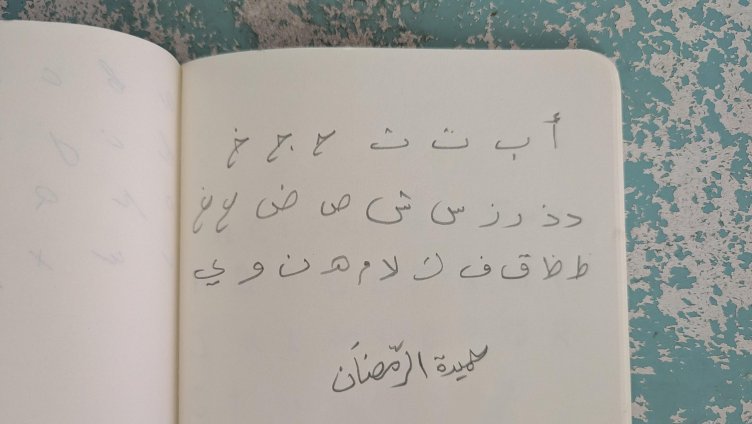 أ ب ت ث ح ج خ
د ذ ر ز س ش ص ض ع غ
ط ظ ق ف ك لا م ه ن و ي
حميدة الرمّضاَن